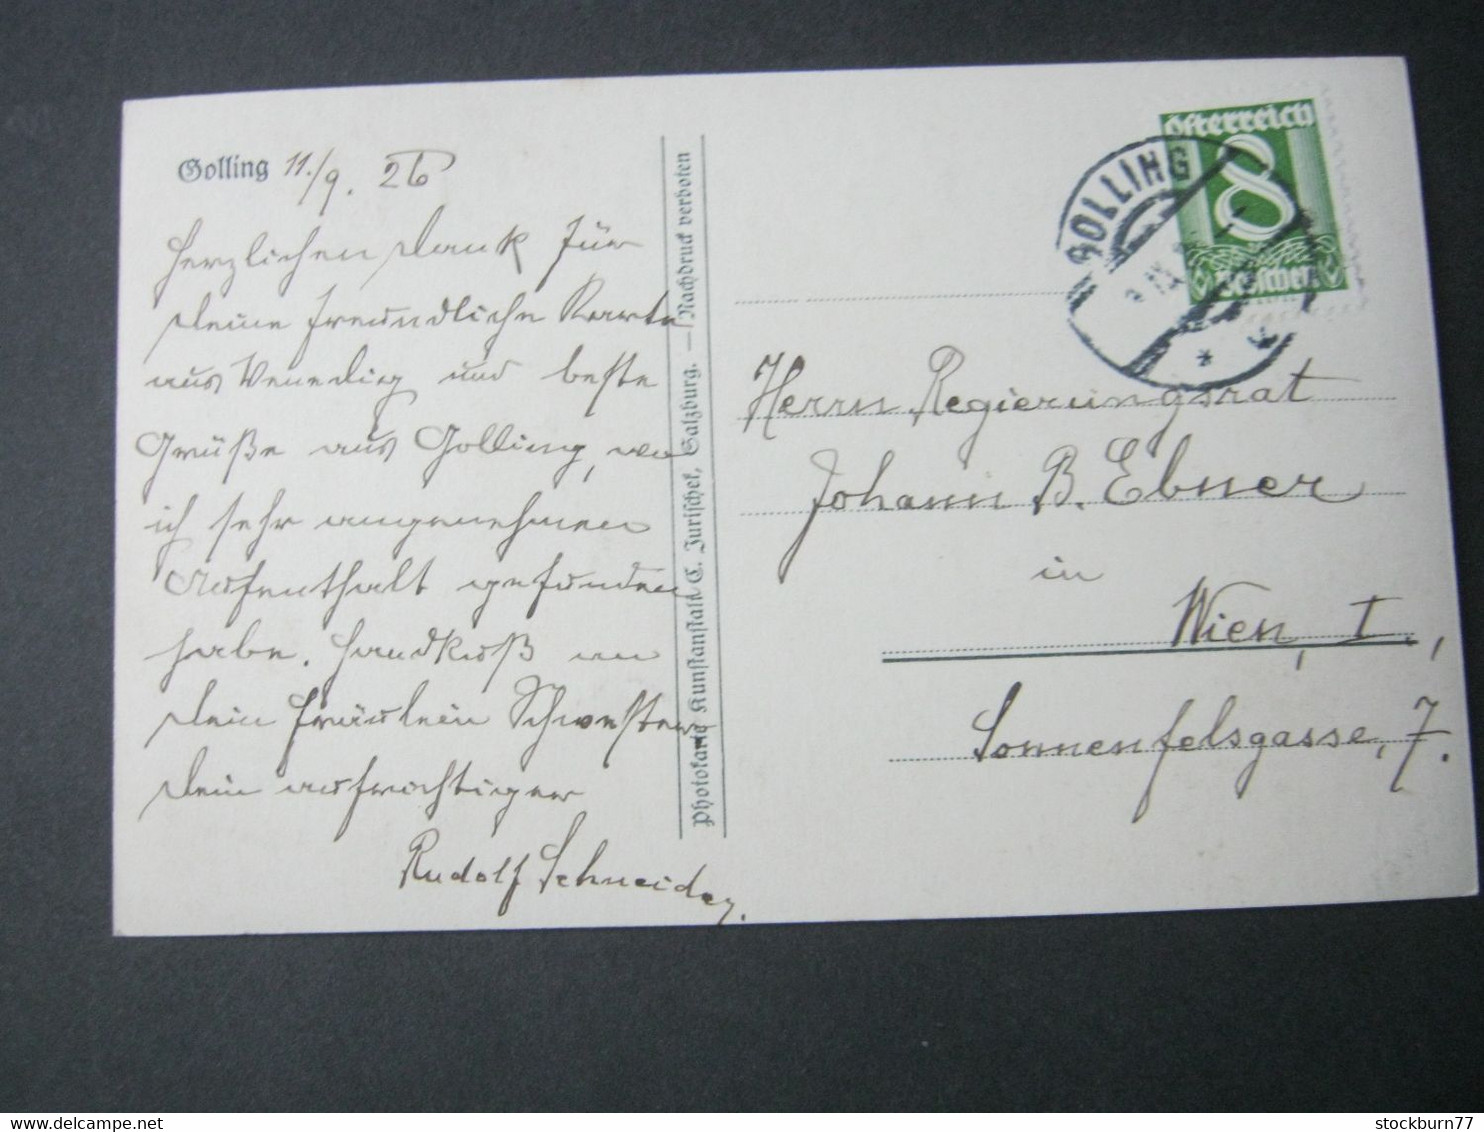 Golling 11./9. 26
Herzlichen Dank für
Deine freundliche Karte
aus Venedig und beste
Grüße aus Golling, wo
ich sehr angenehmen
Aufenthalt gefunden
habe. Handkuß an
Dein Fräulein Schwester
Dein aufrichtiger
Rudolf Schneider.
Photokarte Kunstanstalt C. Jurischek, Salzburg. — Nachdruck verboten
Österreich
8
Groschen
GOLLING
Herrn Regierungsrat
Johann B. Ebner
in
Wien, I.,
Sonnenfelsgasse, 7.
stockburn77